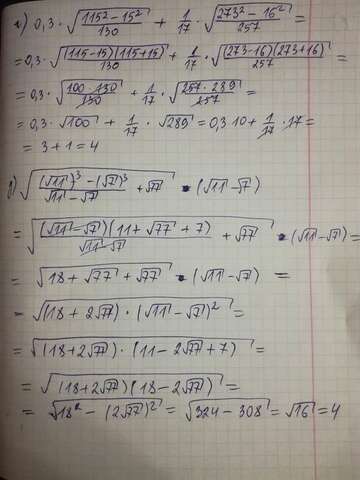 а) 0,3 · √((115² − 15²)/130) + 1/17 · √((273² − 16²)/257) =
= 0,3 · √((115−15)(115+15)/130) + 1/17 · √((273−16)(273+16)/257) =
= 0,3 · √(100·130/130) + 1/17 · √(257·289/257) =
= 0,3 · √100 + 1/17 · √289 = 0,3·10 + 1/17 · 17 =
= 3 + 1 = 4
б) √(((√11)³ − (√7)³)/(√11 − √7) + √77) · (√11 − √7)
= √((√11 − √7)(11 + √77 + 7)/(√11 − √7) + √77) · (√11 − √7) =
= √(18 + √77 + √77) · (√11 − √7) =
= √((18 + 2√77) · (√11 − √7)²) =
= √((18 + 2√77) · (11 − 2√77 + 7)) =
= √((18 + 2√77)(18 − 2√77)) =
= √(18² − (2√77)²) = √(324 − 308) = √16 = 4